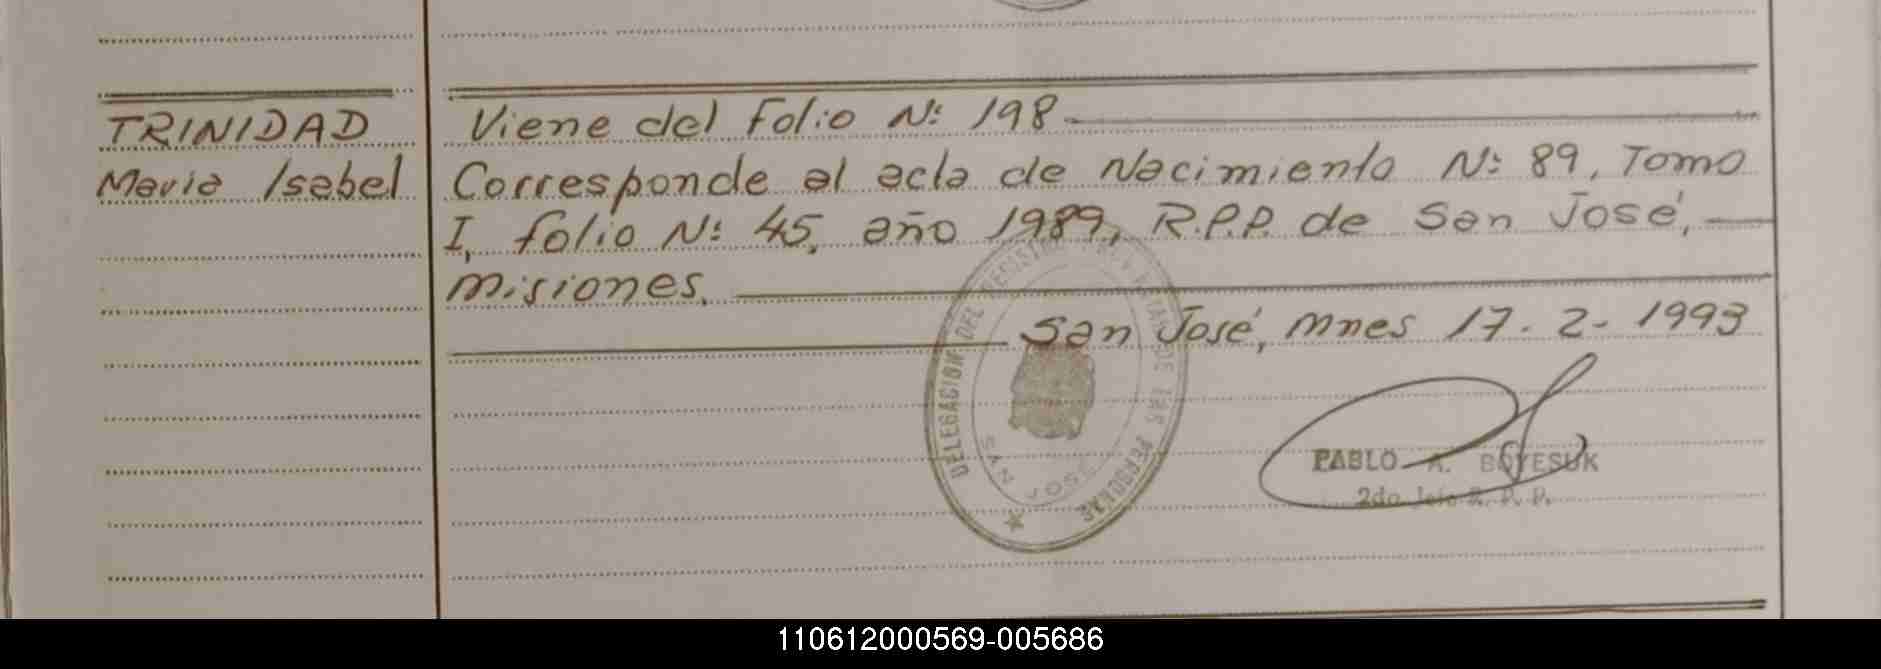 TRINIDAD
Maria Isabel
Viene del Folio Nº 198
Corresponde al acta de Nacimiento Nº 89, Tomo
I, folio Nº 45, año 1989, R.P.P. de San José,
misiones.
San José, Mnes 17-2-1993
DELEGACION DEL REGISTRO DE LAS PERSONAS
SAN JOSE
PABLO A. BOYESUK
2do Jefe R. P. P.
110612000569-005686